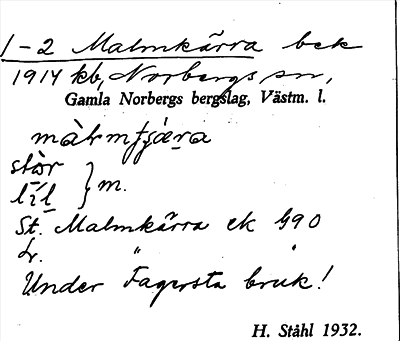 1-2 Malmkärra bek
1914 kb, Norbergs sn,
Gamla Norbergs bergslag, Västm. l.
màlmtjæ̀ra
stòr
lìl } m.
St. Malmkärra ek G90
L. " "
Under Fagersta bruk!
H. Ståhl 1932.